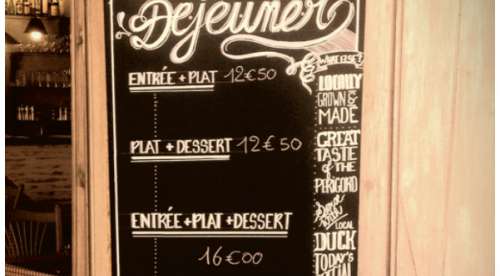 Déjeuner
ENTRÉE + PLAT 12€50
PLAT + DESSERT 12€50
ENTRÉE + PLAT + DESSERT
16€00
WHAT ELSE?
LOCALLY
GROWN &
MADE
GREAT
TASTE
OF THE
PERIGORD
LOCAL
DUCK
TODAY'S